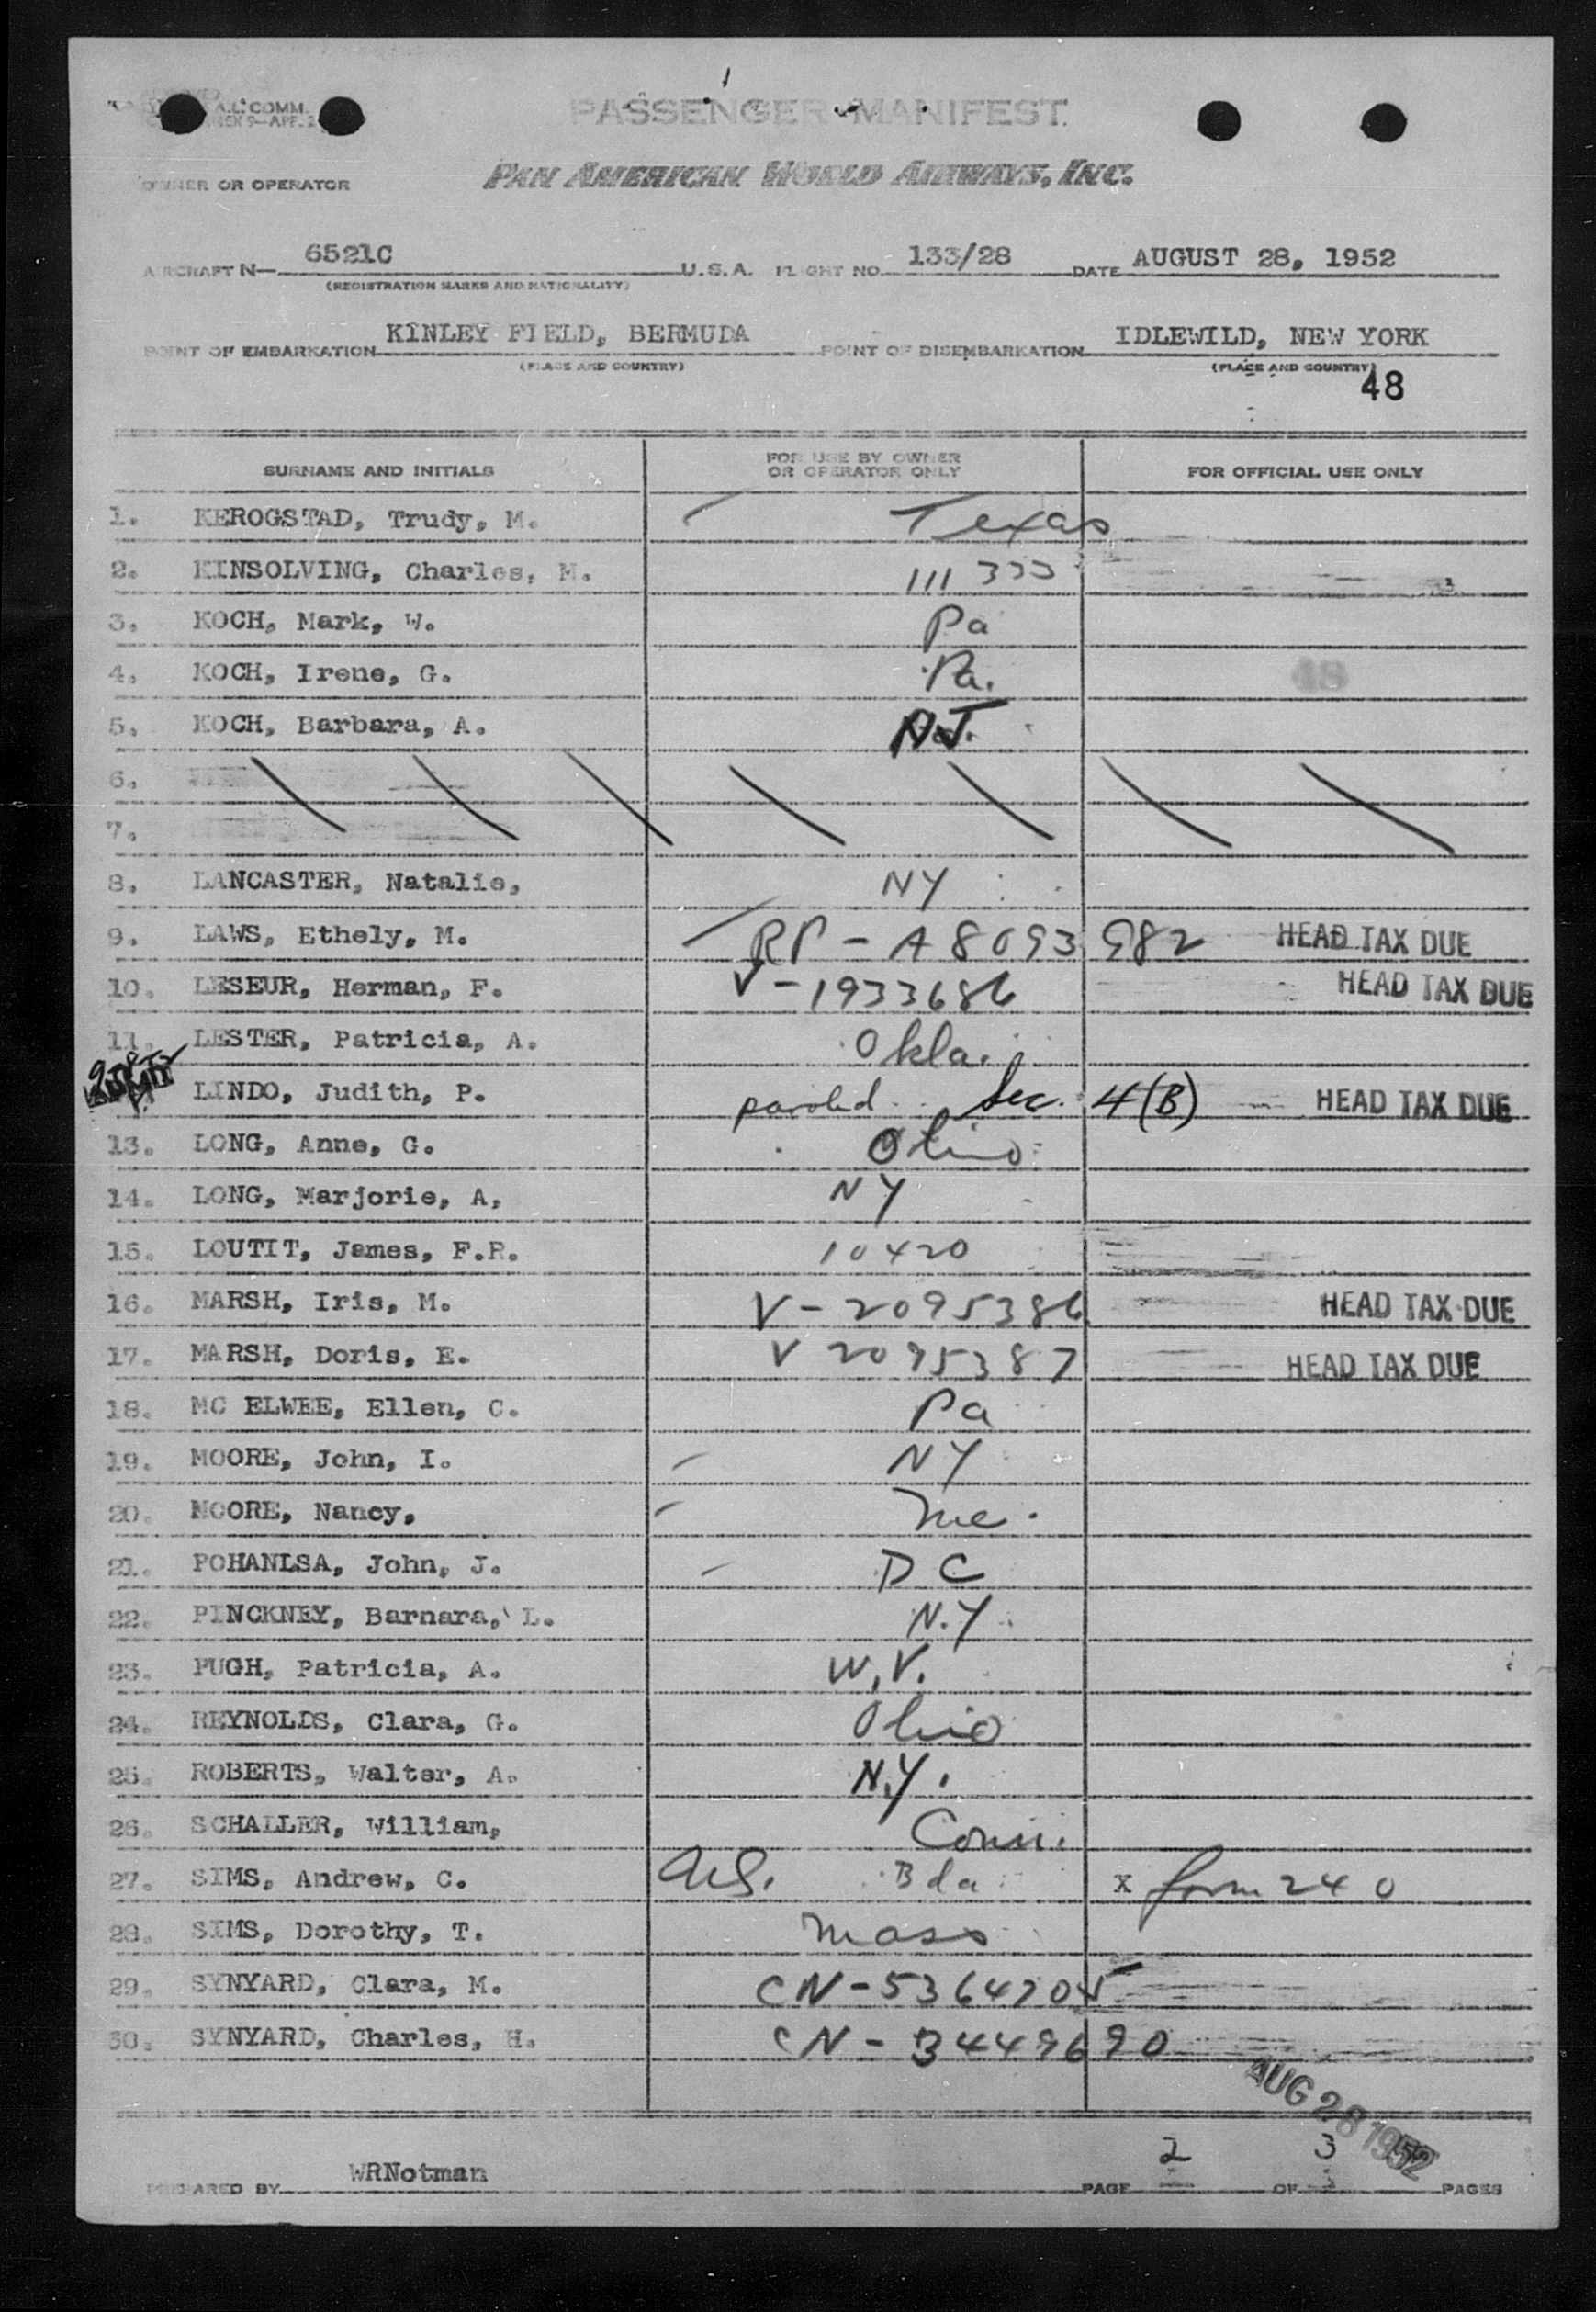 PASSENGER MANIFEST
A.L. COMM.
OWNER OR OPERATOR PAN AMERICAN WORLD AIRWAYS, INC.
AIRCRAFT N— 6521C U.S.A. FLIGHT NO. 133/28 DATE AUGUST 28, 1952
(REGISTRATION MARKS AND NATIONALITY)
POINT OF EMBARKATION KINLEY FIELD, BERMUDA POINT OF DISEMBARKATION IDLEWILD, NEW YORK
(PLACE AND COUNTRY) (PLACE AND COUNTRY)
48
SURNAME AND INITIALS FOR USE BY OWNER OR OPERATOR ONLY FOR OFFICIAL USE ONLY
1. KEROGSTAD, Trudy, M. Texas
2. KINSOLVING, Charles, M. 111 333
3. KOCH, Mark, W. Pa
4. KOCH, Irene, G. Pa.
5. KOCH, Barbara, A.
6.
7.
8. LANCASTER, Natalie, NY
9. LAWS, Ethely, M. RP - A8093 982 HEAD TAX DUE
10. LESEUR, Herman, F. V-1933686 HEAD TAX DUE
11. LESTER, Patricia, A. Okla.
LINDO, Judith, P. paroled Sec. 4(B) HEAD TAX DUE
13. LONG, Anne, G. Ohio
14. LONG, Marjorie, A, NY
15. LOUTIT, James, F.R. 10420
16. MARSH, Iris, M. V-2095386 HEAD TAX DUE
17. MARSH, Doris, E. V 2095387 HEAD TAX DUE
18. MC ELWEE, Ellen, C. Pa
19. MOORE, John, I. NY
20. MOORE, Nancy, Me.
21. POHANLSA, John, J. D C
22. PINCKNEY, Barnara, L. N.Y
23. PUGH, Patricia, A. W.V.
24. REYNOLDS, Clara, G. Ohio
25. ROBERTS, Walter, A. N.Y.
26. SCHALLER, William, Conn.
27. SIMS, Andrew, C. Bda x form 240
28. SIMS, Dorothy, T. Mass
29. SYNYARD, Clara, M. CN-5364705
30. SYNYARD, Charles, H. CN-3449690
AUG 28 1952
PREPARED BY WRNotman PAGE 2 OF 3 PAGES